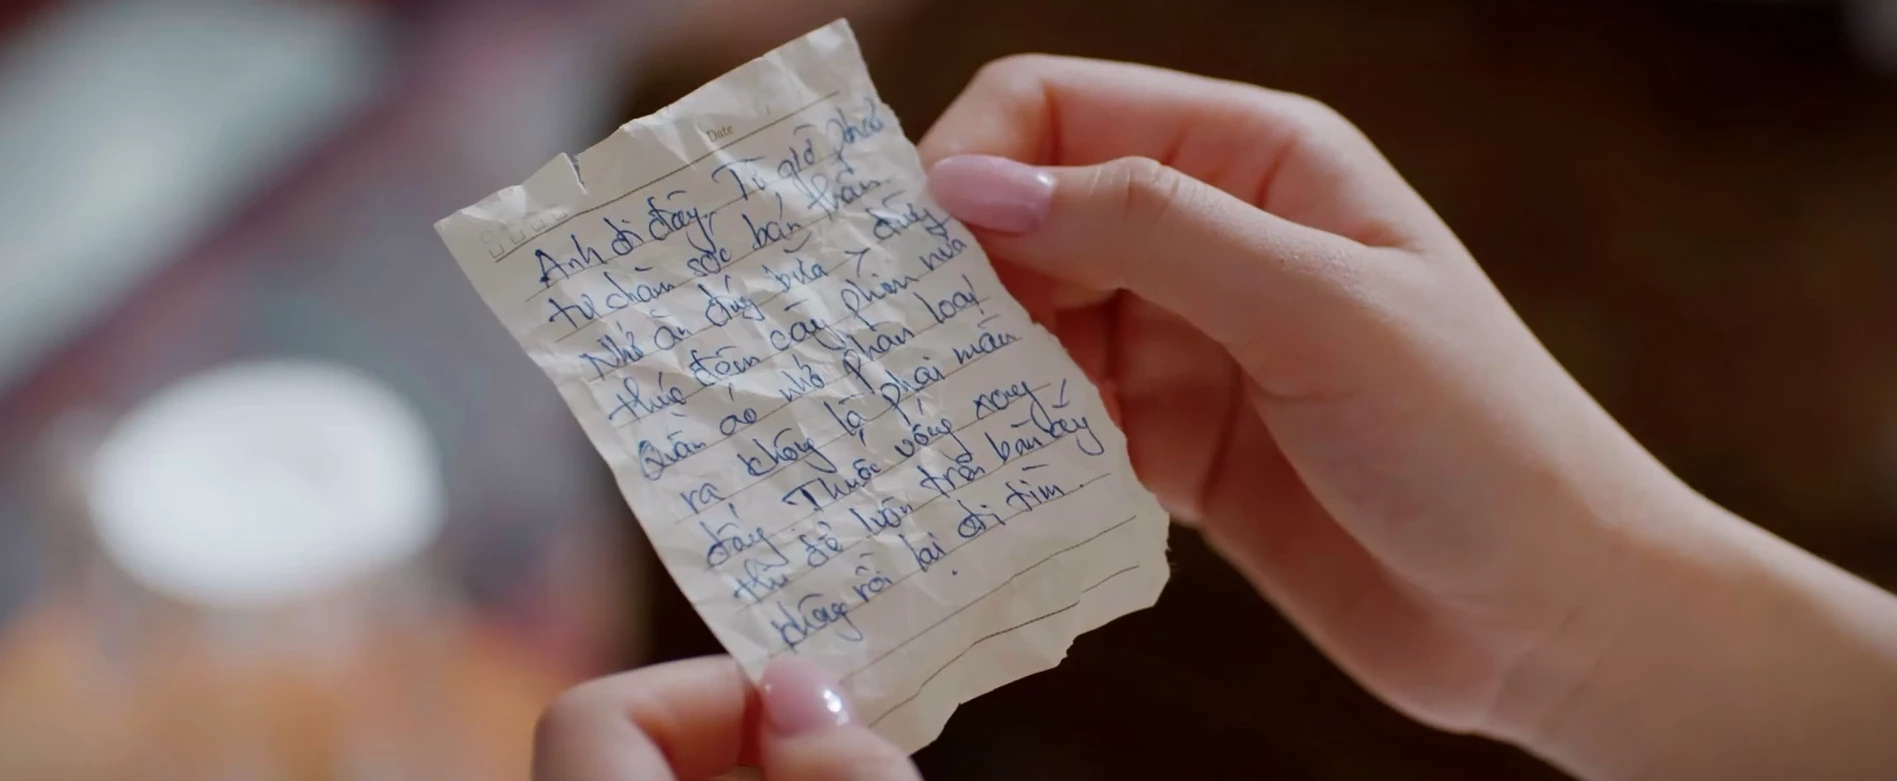 Date
Anh đi đây, Từ giờ phải
tự chăm sóc bản thân
Nhớ ăn đúng bữa, đừng
thức đêm cày phim nữa
Quần áo nhớ phân loại
ra không là phai màu
đấy. Thuốc uống xong
thì để luôn trên bàn ấy
không rồi lại đi tìm.